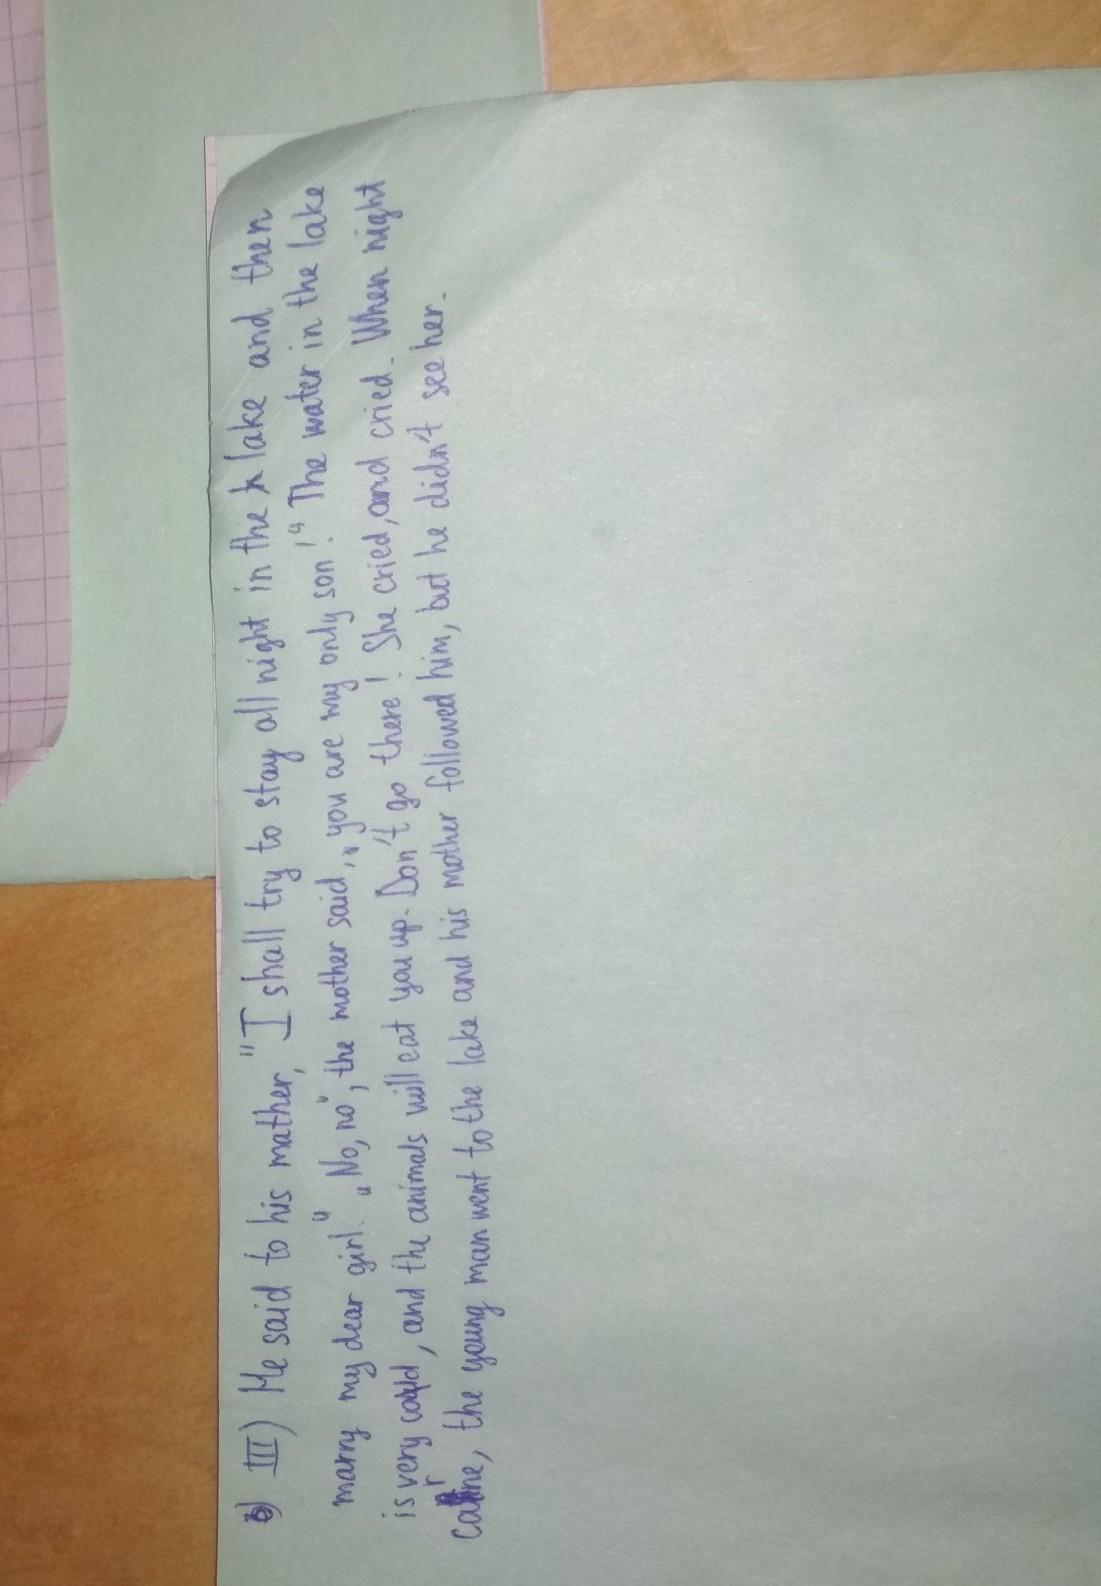 б) III) He said to his mather, "I shall try to stay all night in the lake and then
marry my dear girl." „No, no", the mother said, „you are my only son!“ The water in the lake
is very cold, and the animals will eat you up. Don't go there! She cried, and cried. When night
came, the young man went to the lake and his mother followed him, but he didn't see her.